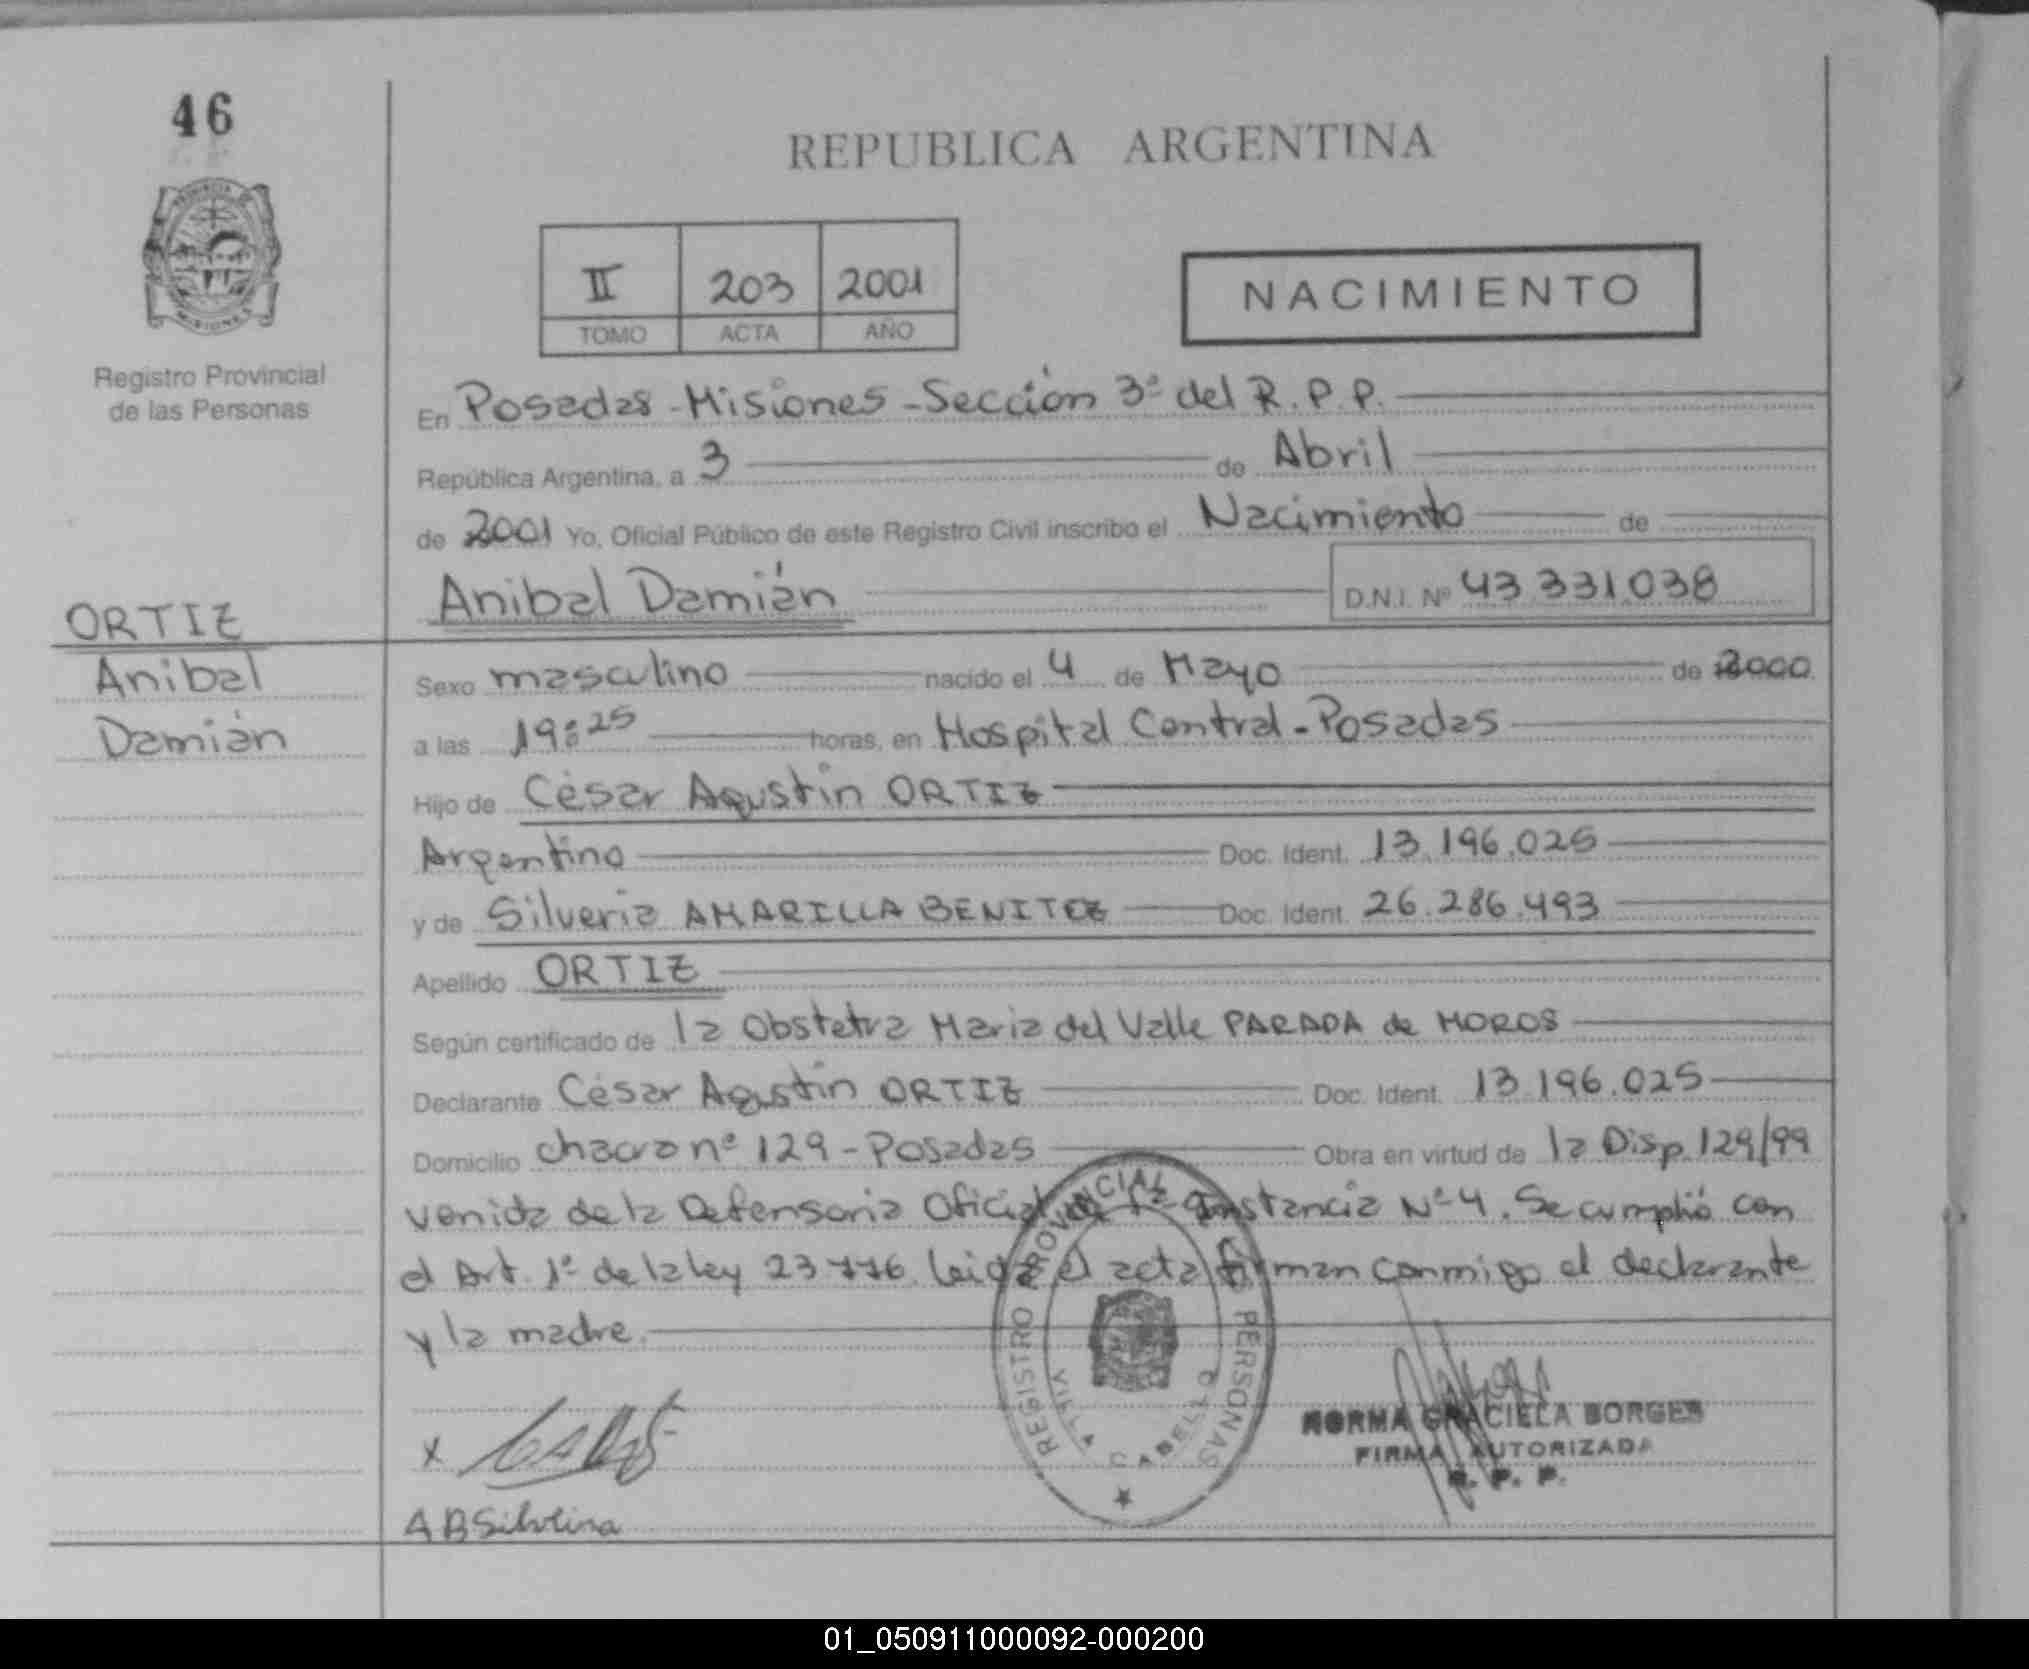 46
REPUBLICA ARGENTINA
II 203 2001
TOMO ACTA AÑO
NACIMIENTO
PROVINCIA DE
MISIONES
Registro Provincial
de las Personas
En Posadas - Misiones - Sección 3ª del R.P.P.
República Argentina, a 3 de Abril
de 2001 Yo, Oficial Público de este Registro Civil inscribo el Nacimiento de
Anibal Damián D.N.I. Nº 43 331.038
ORTIZ
Anibal
Damián
Sexo masculino nacido el 4 de Mayo de 2000
a las 19:25 horas, en Hospital Central - Posadas
Hijo de César Agustín ORTIZ
Argentino Doc. Ident. 13.196.025
y de Silveria AMARILLA BENITEZ Doc. Ident. 26.286.493
Apellido ORTIZ
Según certificado de la Obstetra Maria del Valle PARADA de MOROS
Declarante César Agustín ORTIZ Doc. Ident. 13.196.025
Domicilio chacra nº 129 - Posadas Obra en virtud de la Disp. 129/99
venida de la Defensoria Oficial de 1ª Instancia Nº 4. Se cumplió con
el Art. 1º de la ley 23.776. Leida el acta firman conmigo el declarante
y la madre.
REGISTRO PROVINCIAL PERSONAS
VILLA CABELLO
NORMA GRACIELA BORGES
FIRMA AUTORIZADA
R. P. P.
x
A B Silveria
01_050911000092-000200